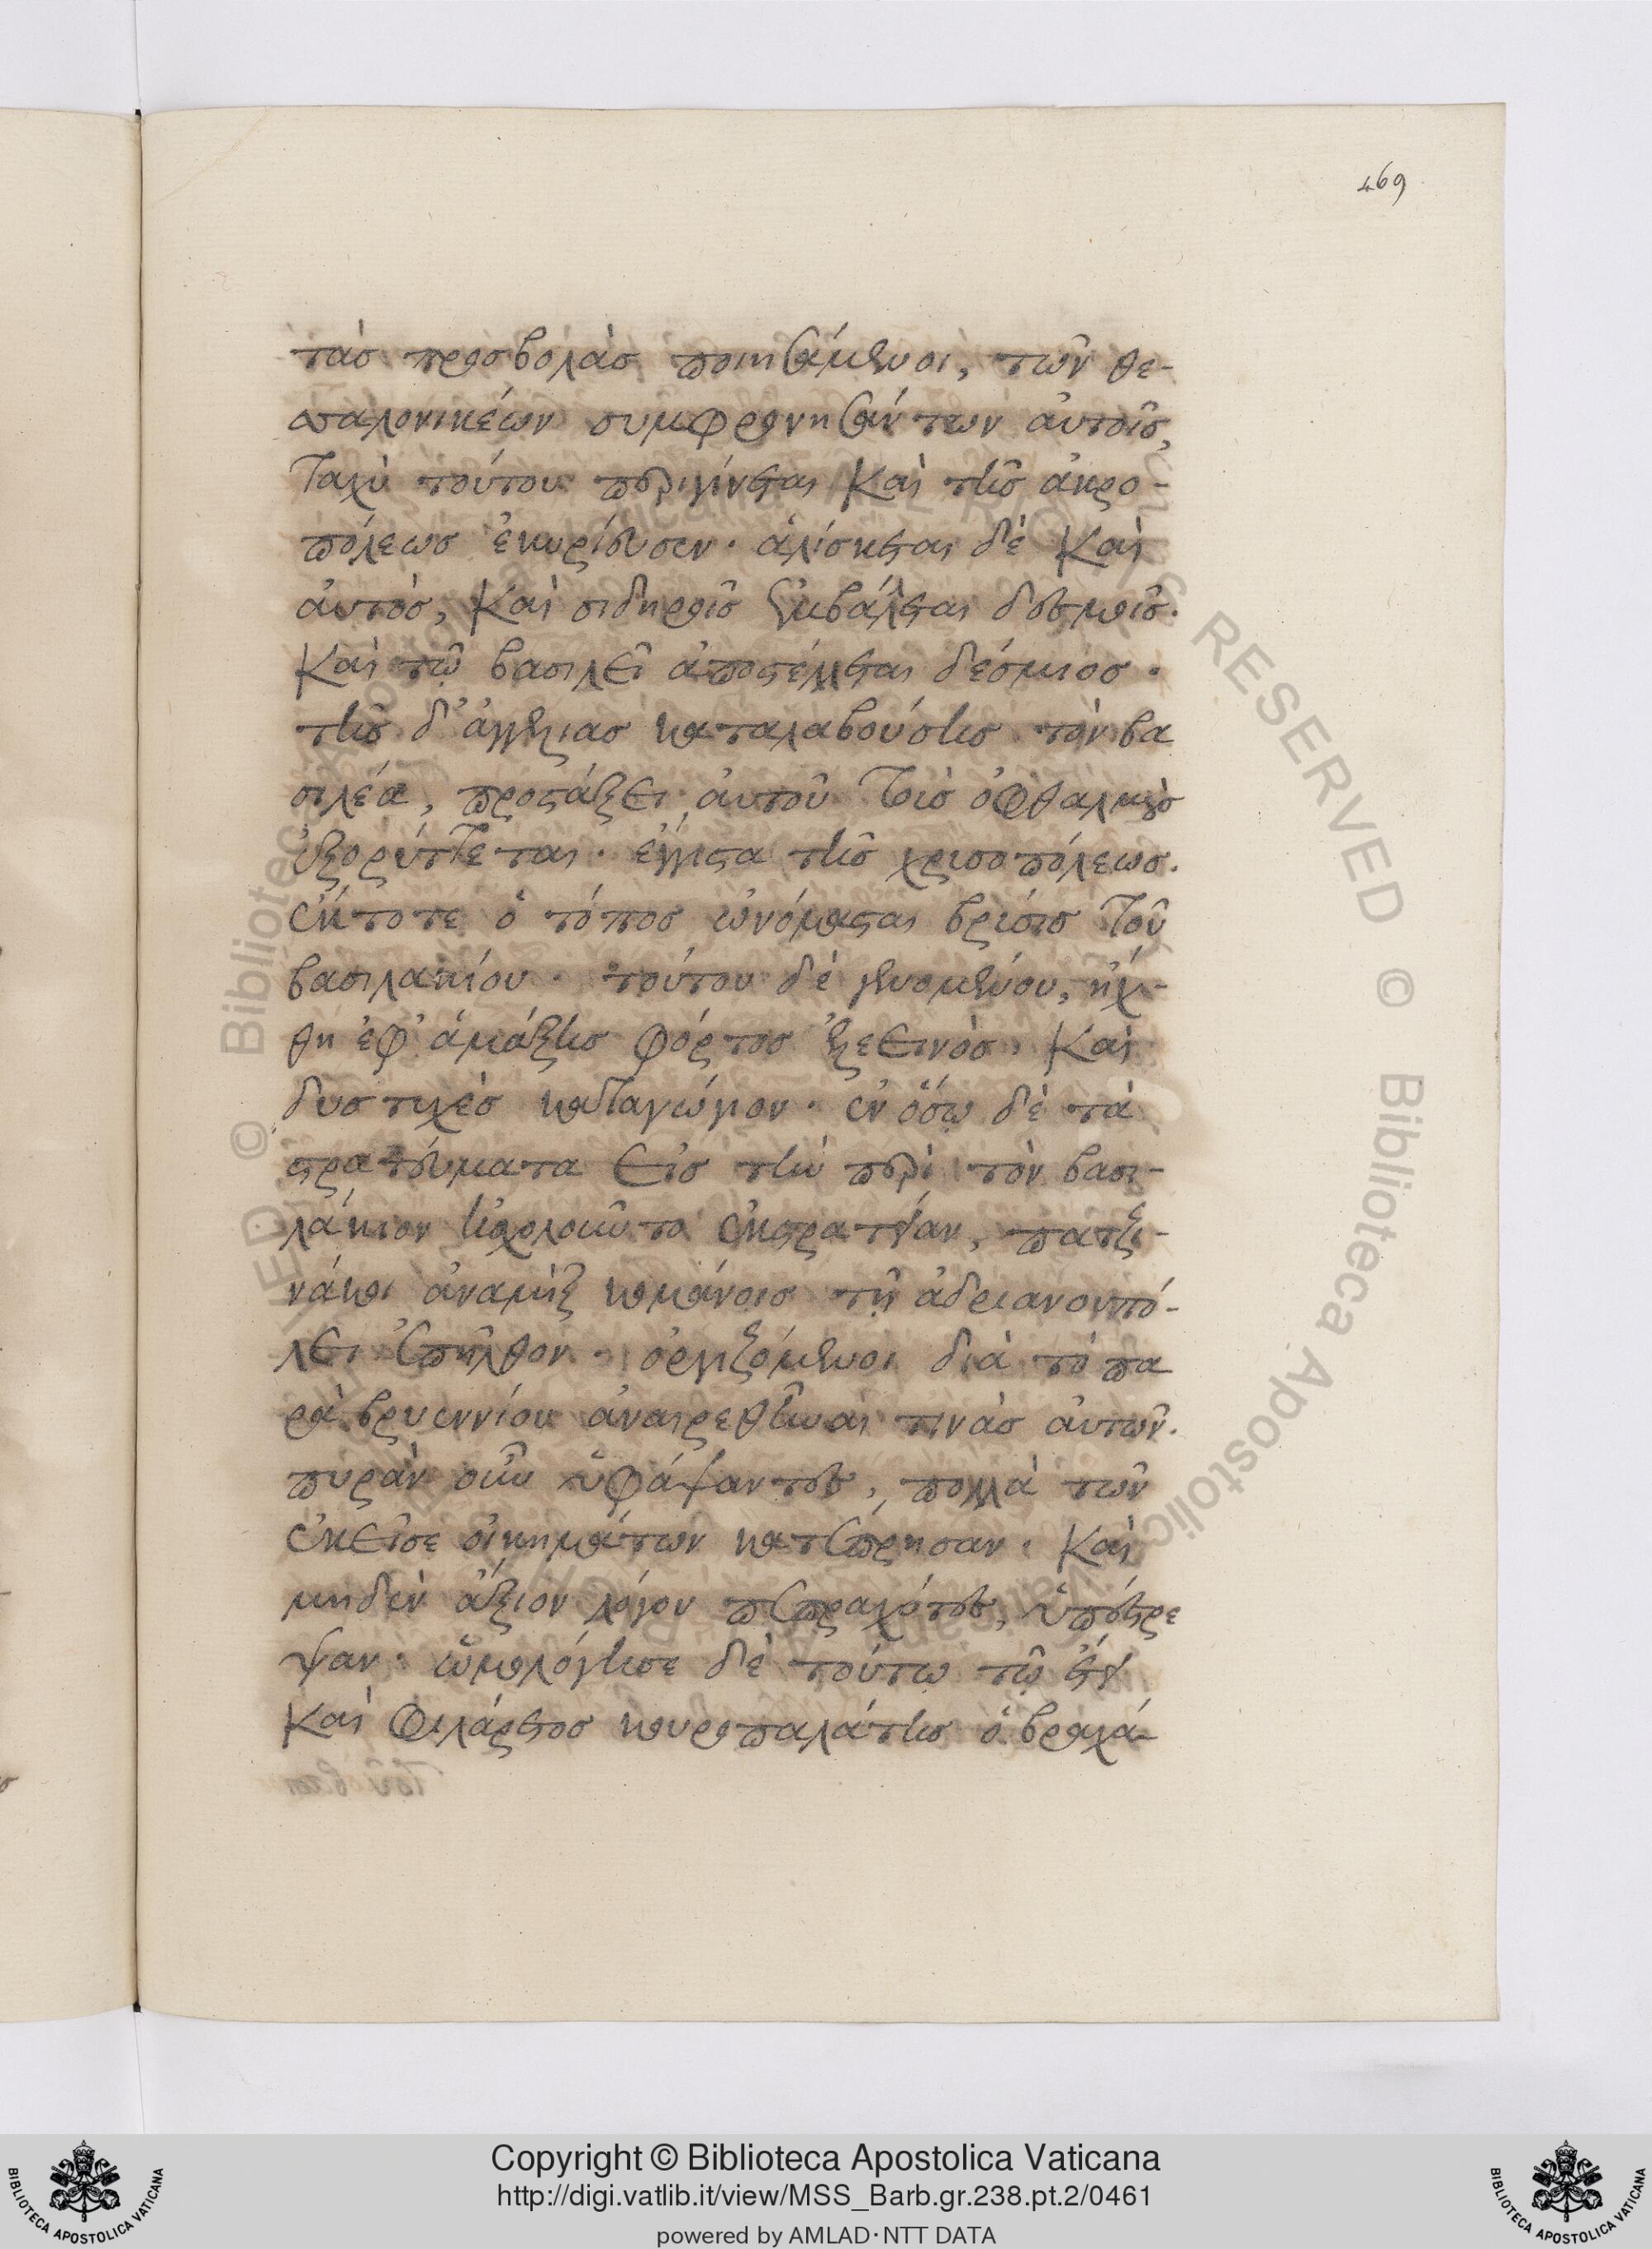 469
τὰς προσβολὰς ποιησάμενοι, τῶν θε-
σσαλονικέων συμφρονησάντων αὐτοῖς,
ταχὺ τούτου περιγίνεται καὶ τῆς ἀκρο-
πόλεως ἐκυρίευσεν· ἁλίσκεται δὲ καὶ
αὐτὸς, καὶ σιδηροῖς ἐμβάλεται δεσμοῖς·
καὶ τῷ βασιλεῖ ἀποστέλλεται δέσμιος·
τῆς δ' ἀγγελίας καταλαβούσης τὸν βα
σιλέα, προστάξει αὐτοῦ τοὺς ὀφθαλμοὺς
ἐξορύττεται· ἔγγιστα τῆς χρισοπόλεως·
ἔκτοτε ὁ τόπος ὠνόμασται βρύσις τοῦ
βασιλακίου· τούτου δὲ γενομένου, ἤχ-
θη ἐφ' ἁμάξης φόρτος ἐλεεινὸς, καὶ
δυστυχὲς καταγώγιον· ἐν ὅσῳ δὲ τὰ
στρατεύματα εἰς τὴν περὶ τὸν βασι-
λάκιον ἠσχολοῦντο ἐκστρατείαν, πατζι-
νάκοι ἀναμὶξ κομάνοις τῇ ἀδριανουπό-
λει ἐπῆλθον· ὀργιζόμενοι διὰ τὸ πα
ρὰ βρυεννίου ἀναιρεθῆναι τινὰς αὐτῶν·
πυρὰν οὖν ὑφάψαντες, πολλὰ τῶν
ἐκεῖσε οἰκημάτων κατέπρησαν· καὶ
μηδὲν ἄξιον λόγου πεπραχότες, ὑπέστρε
ψαν· ὡμολόγησε δὲ τούτῳ τῷ ἔτει
καὶ Φιλάρετος κουροπαλάτης ὁ βραχά-
Copyright © Biblioteca Apostolica Vaticana
http://digi.vatlib.it/view/MSS_Barb.gr.238.pt.2/0461
powered by AMLAD·NTT DATA
BIBLIOTECA APOSTOLICA VATICANA
BIBLIOTECA APOSTOLICA VATICANA